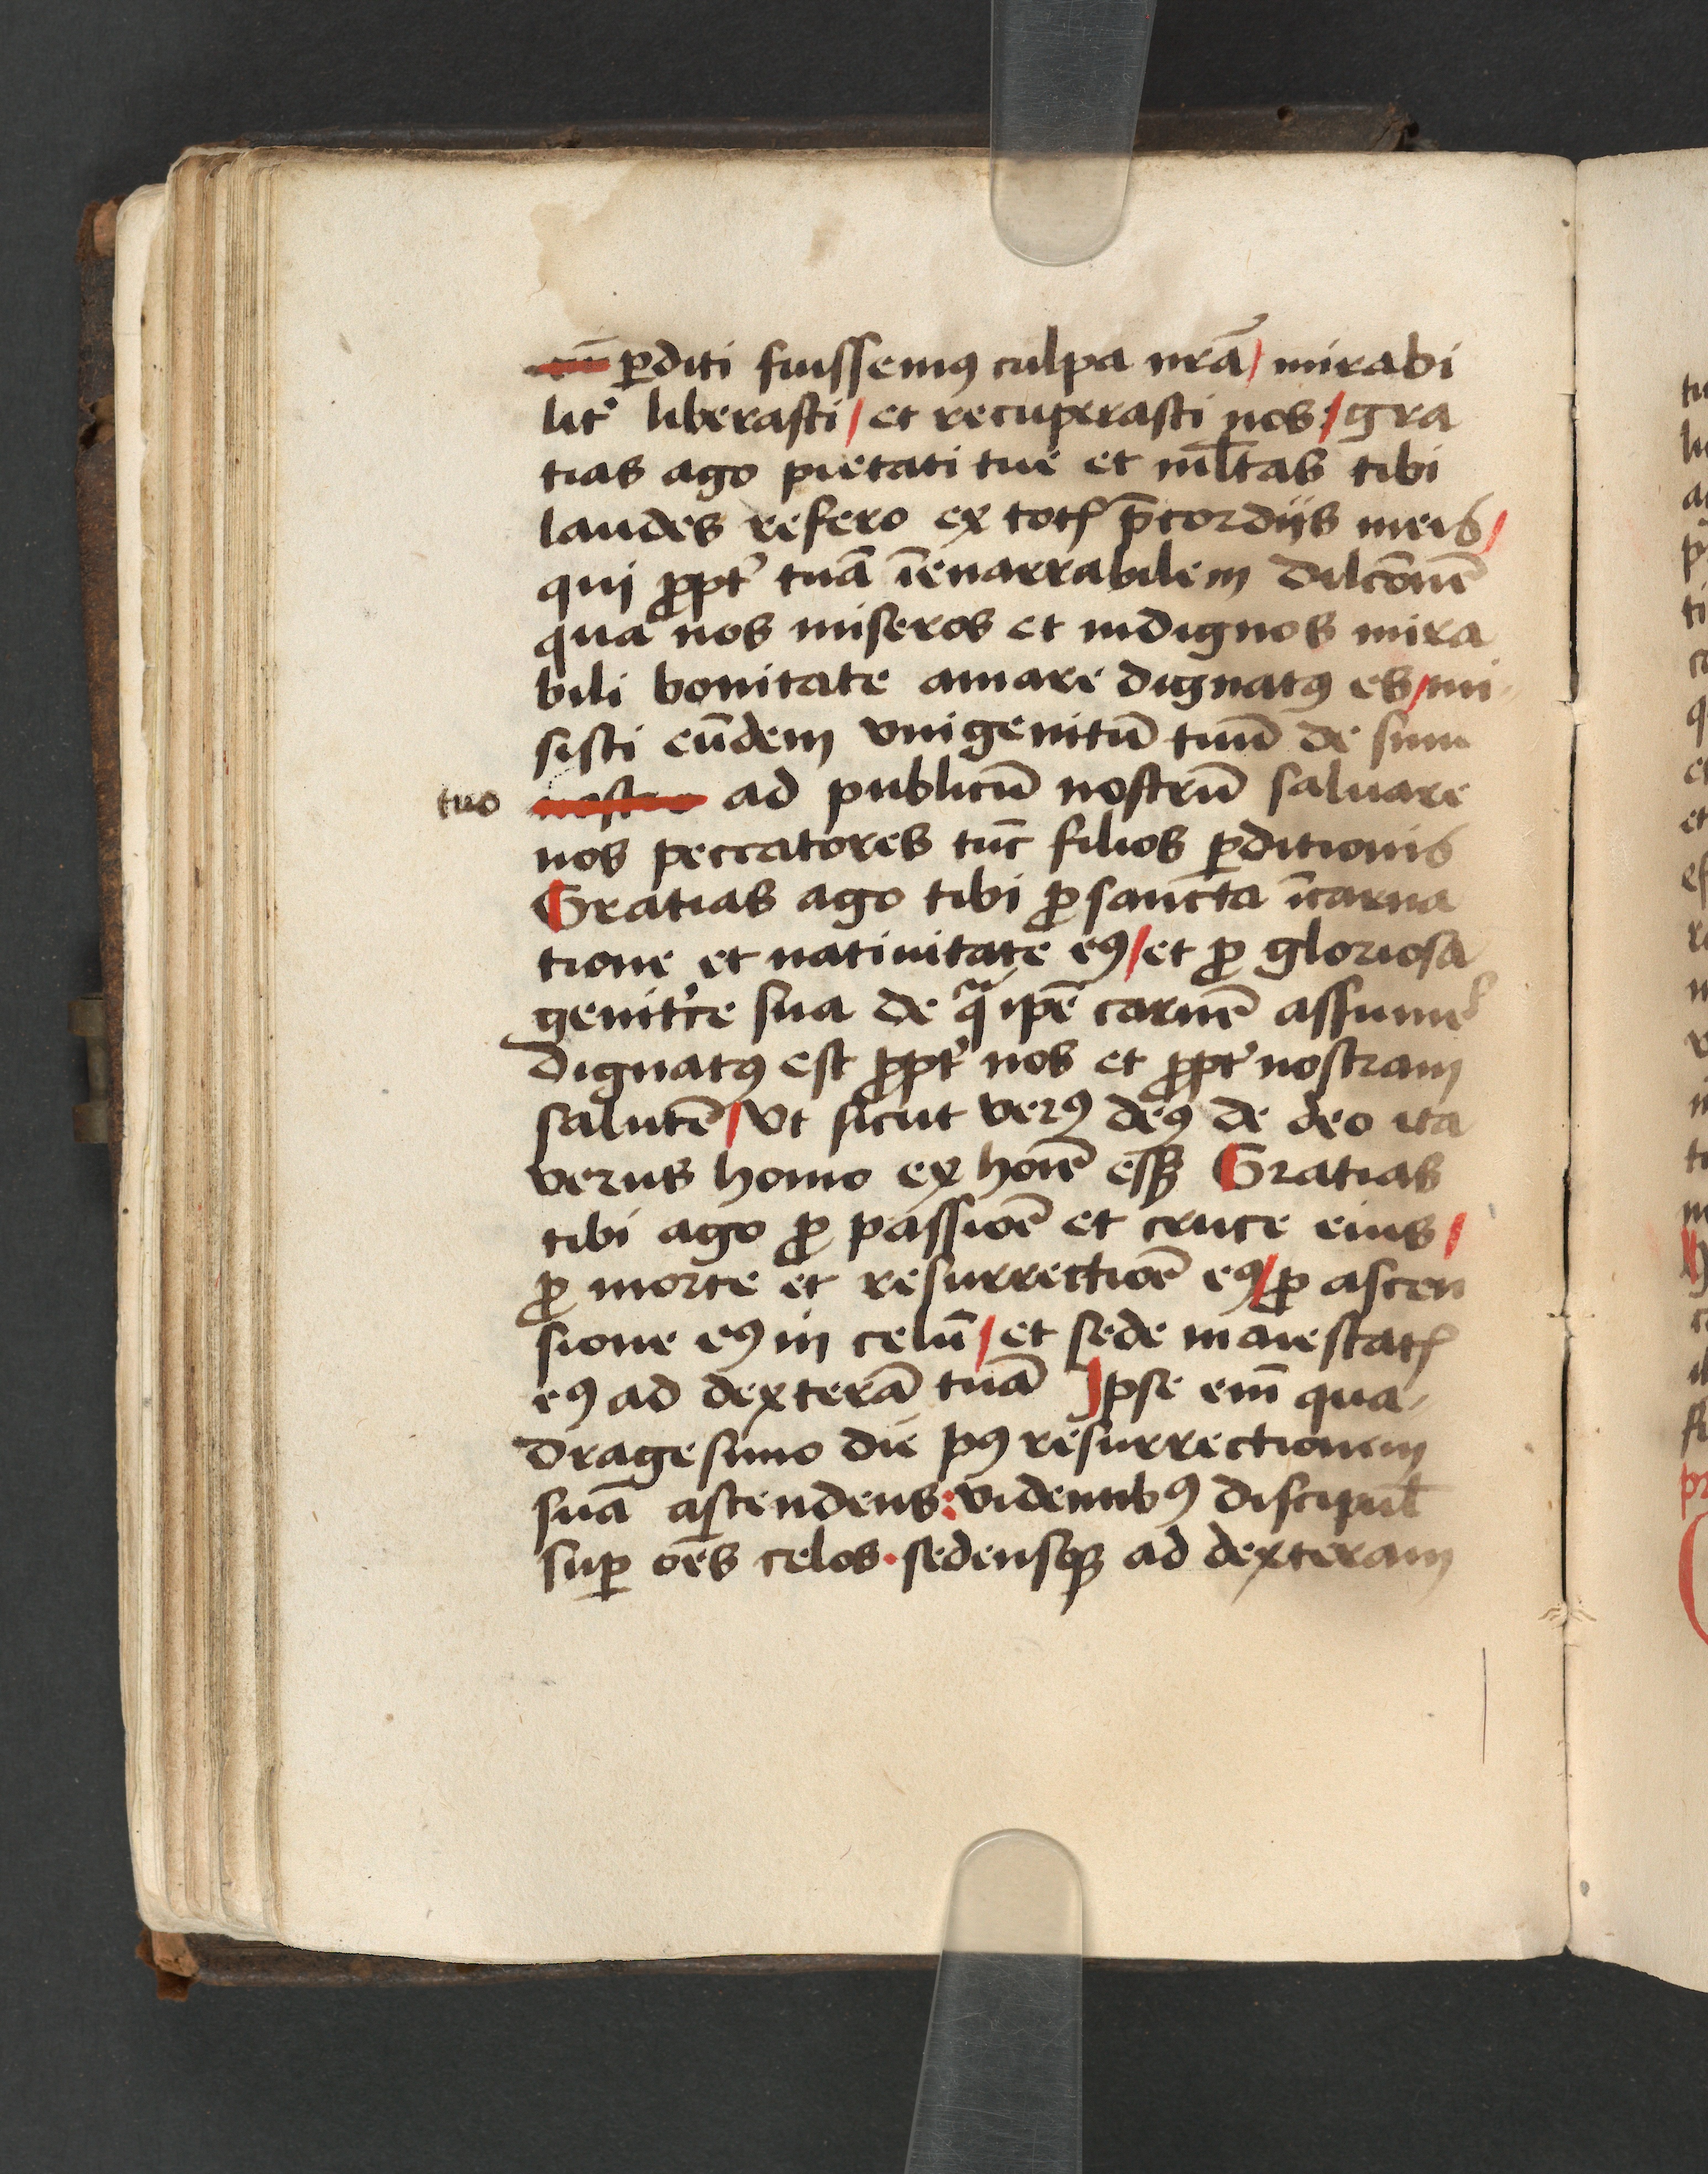 ꝑditi fuissemꝰ culpa nrã / mirabi
lit᷑ liberasti / et recuperasti nos / gra
tias ago pietati tue et ml̃tas tibi
laudes refero ex totꝭ p̃cordijs meis /
qui ꝓpt᷑ tuã ĩenarrabilem dilcõnẽ
qua nos miseros et indignos mira
bili bonitate amare dignatꝰ es / mi
sisti eũdem vnigenitũ tuũ de sinu
tuo ad publicũ nostrũ saluare
nos peccatores tũc filios ꝑditionis
Gratias ago tibi ꝓ sancta ĩcarna
tione et natiuitate eꝰ / et ꝓ gloriosa
genit'ce sua de qᷓ ipẽ carnẽ assume᷑
dignatꝰ est ꝓpt᷑ nos et ꝓpt᷑ nostram
salutẽ / vt sicut verꝰ deꝰ de deo ita
verus homo ex hoĩe eſſꝫ Gratias
tibi ago ꝓ passiõe et cruce eius /
ꝓ morte et resurrectiõe eꝰ / ꝓ ascen
sione eꝰ in celũ / et sede maiestatꝭ
eꝰ ad dexterã tuã Ipse eni᷑ qua
dragesimo die pꝰ resurrectionem
suã ascendens : videntibꝰ discipul̃
suꝑ oẽs celos · sedensqꝫ ad dexteram